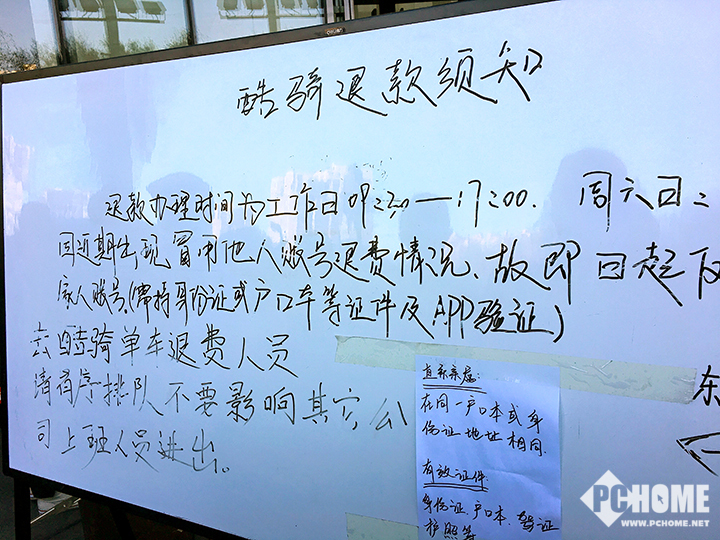 酷骑退款须知
退款办理时间为工作日09:30—17:00. 周六日
因近期出现冒用他人账号退费情况、故即日起
家人账号.(需持身份证或户口本等证件及APP验证)
去酷骑单车退费人员
请有序排队不要影响其它公
司上班人员进出。
直系亲属:
在同一户口本或身
份证地址相同.
有效证件
身份证、户口本、驾证
护照等
东
PCHOME
WWW.PCHOME.NET